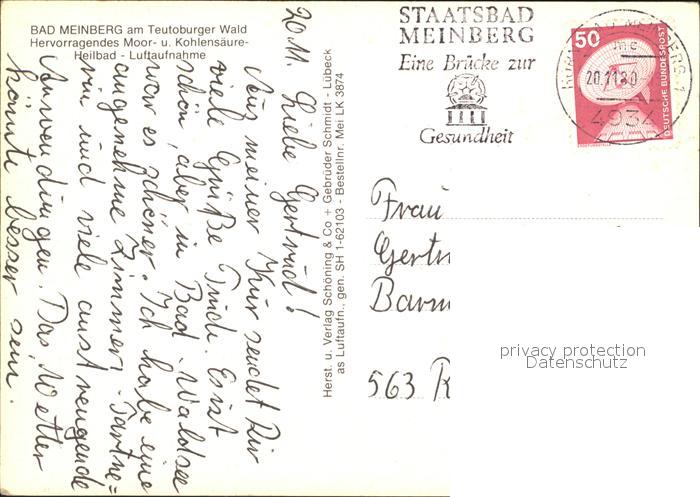 BAD MEINBERG am Teutoburger Wald
Hervorragendes Moor- u. Kohlensäure-
Heilbad - Luftaufnahme
20.11. Liebe Gertrud!
Aus meiner Kur sendet Dir
viele Grüße Trudi. Es ist
schön, aber in Bad-Waldsee
war es schöner. Ich habe eine
angenehme Zimmer-Partne=
rin und viele anstrengende
Anwendungen. Das Wetter
könnte besser sein.
Herst. u. Verlag Schöning & Co + Gebrüder Schmidt - Lübeck
as Luftaufn., gen. SH 1-62103 - Bestellnr. Mei LK 3874
STAATSBAD
MEINBERG
Eine Brücke zur
Gesundheit
20.11.80
4934
50
DEUTSCHE BUNDESPOST
Frau
Gertr
Barm
563 R
privacy protection
Datenschutz